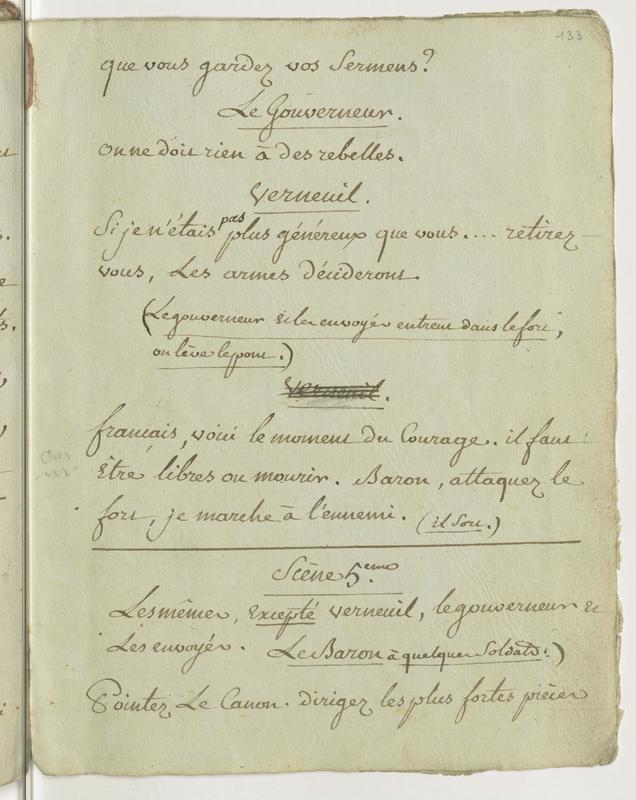 133
que vous gardez vos Sermens?
Le Gouverneur.
on ne doit rien à des rebelles.
Verneuil.
Si je n'étais pas plus généreux que vous.... retirez-
vous, Les armes décideront.
(Le gouverneur et les envoyés entrent dans le fort,
on lève le pont.)
Verneuil.
français, voici le moment du Courage. il faut
Être libres ou mourir. Baron, attaquez le
fort, je marche à l'ennemi. (il Sort.)
Scène 5.eme
Les mêmes, Excepté Verneuil, le gouverneur Et
Les envoyés. Le Baron à quelques Soldats.)
Pointez Le Canon. dirigez les plus fortes pièces